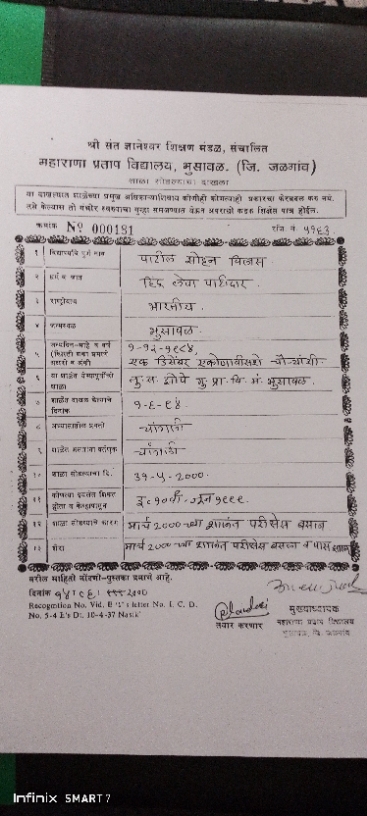 श्री संत ज्ञानेश्वर शिक्षण मंडळ, संचालित
महाराणा प्रताप विद्यालय, भुसावळ. (जि. जळगांव)
शाळा सोडल्याचा दाखला
या दाखल्यात शाळेच्या प्रमुख अधिकाऱ्याशिवाय कोणीही कोणत्याही प्रकारचा फेरबदल करू नये.
तसे केल्यास तो गंभीर स्वरुपाचा गुन्हा समजण्यात येऊन अपराधी कडक शिक्षेस पात्र होईल.
क्रमांक Nº 000181 रजि नं. ५१६३
१ विद्यार्थ्याचे पूर्ण नाव पाटील मोहन विलास
२ धर्म व जात हिंदू लेवा पाटीदार
३ राष्ट्रीयत्व भारतीय
४ जन्मस्थळ भुसावळ
५ १-१२-१९८४,
एक डिसेंबर एकोणावीसशे चौऱ्यांशी
६ या शाळेत येण्यापूर्वीची शाळा भुसावळ
७ शाळेत दाखल केल्याचे दिनांक १-६-९४
८ अभ्यासातील प्रगती चांगली
९ शाळेत असताना वर्तणूक चांगली
१० शाळा सोडल्याचा दि. ३१-५-2000
११ इ. १० वी - जून १९९९
१२ शाळा सोडण्याचे कारण मार्च 2000 च्या शालांत परीक्षेस बसला
१३ शेरा मार्च 2000 च्या शालांत परीक्षेस बसला व पास झाला
वरील माहिती नोंदणी-पुस्तका प्रमाणे आहे.
दिनांक
Recognition No. Vid. E. I.'s letter No. I. C. D.
No. 5-4 E's Dt. 10-4-37 Nasik
तयार करणार
मुख्याध्यापक
महाराणा प्रताप विद्यालय
भुसावळ, जि. जळगांव
Infinix SMART 7